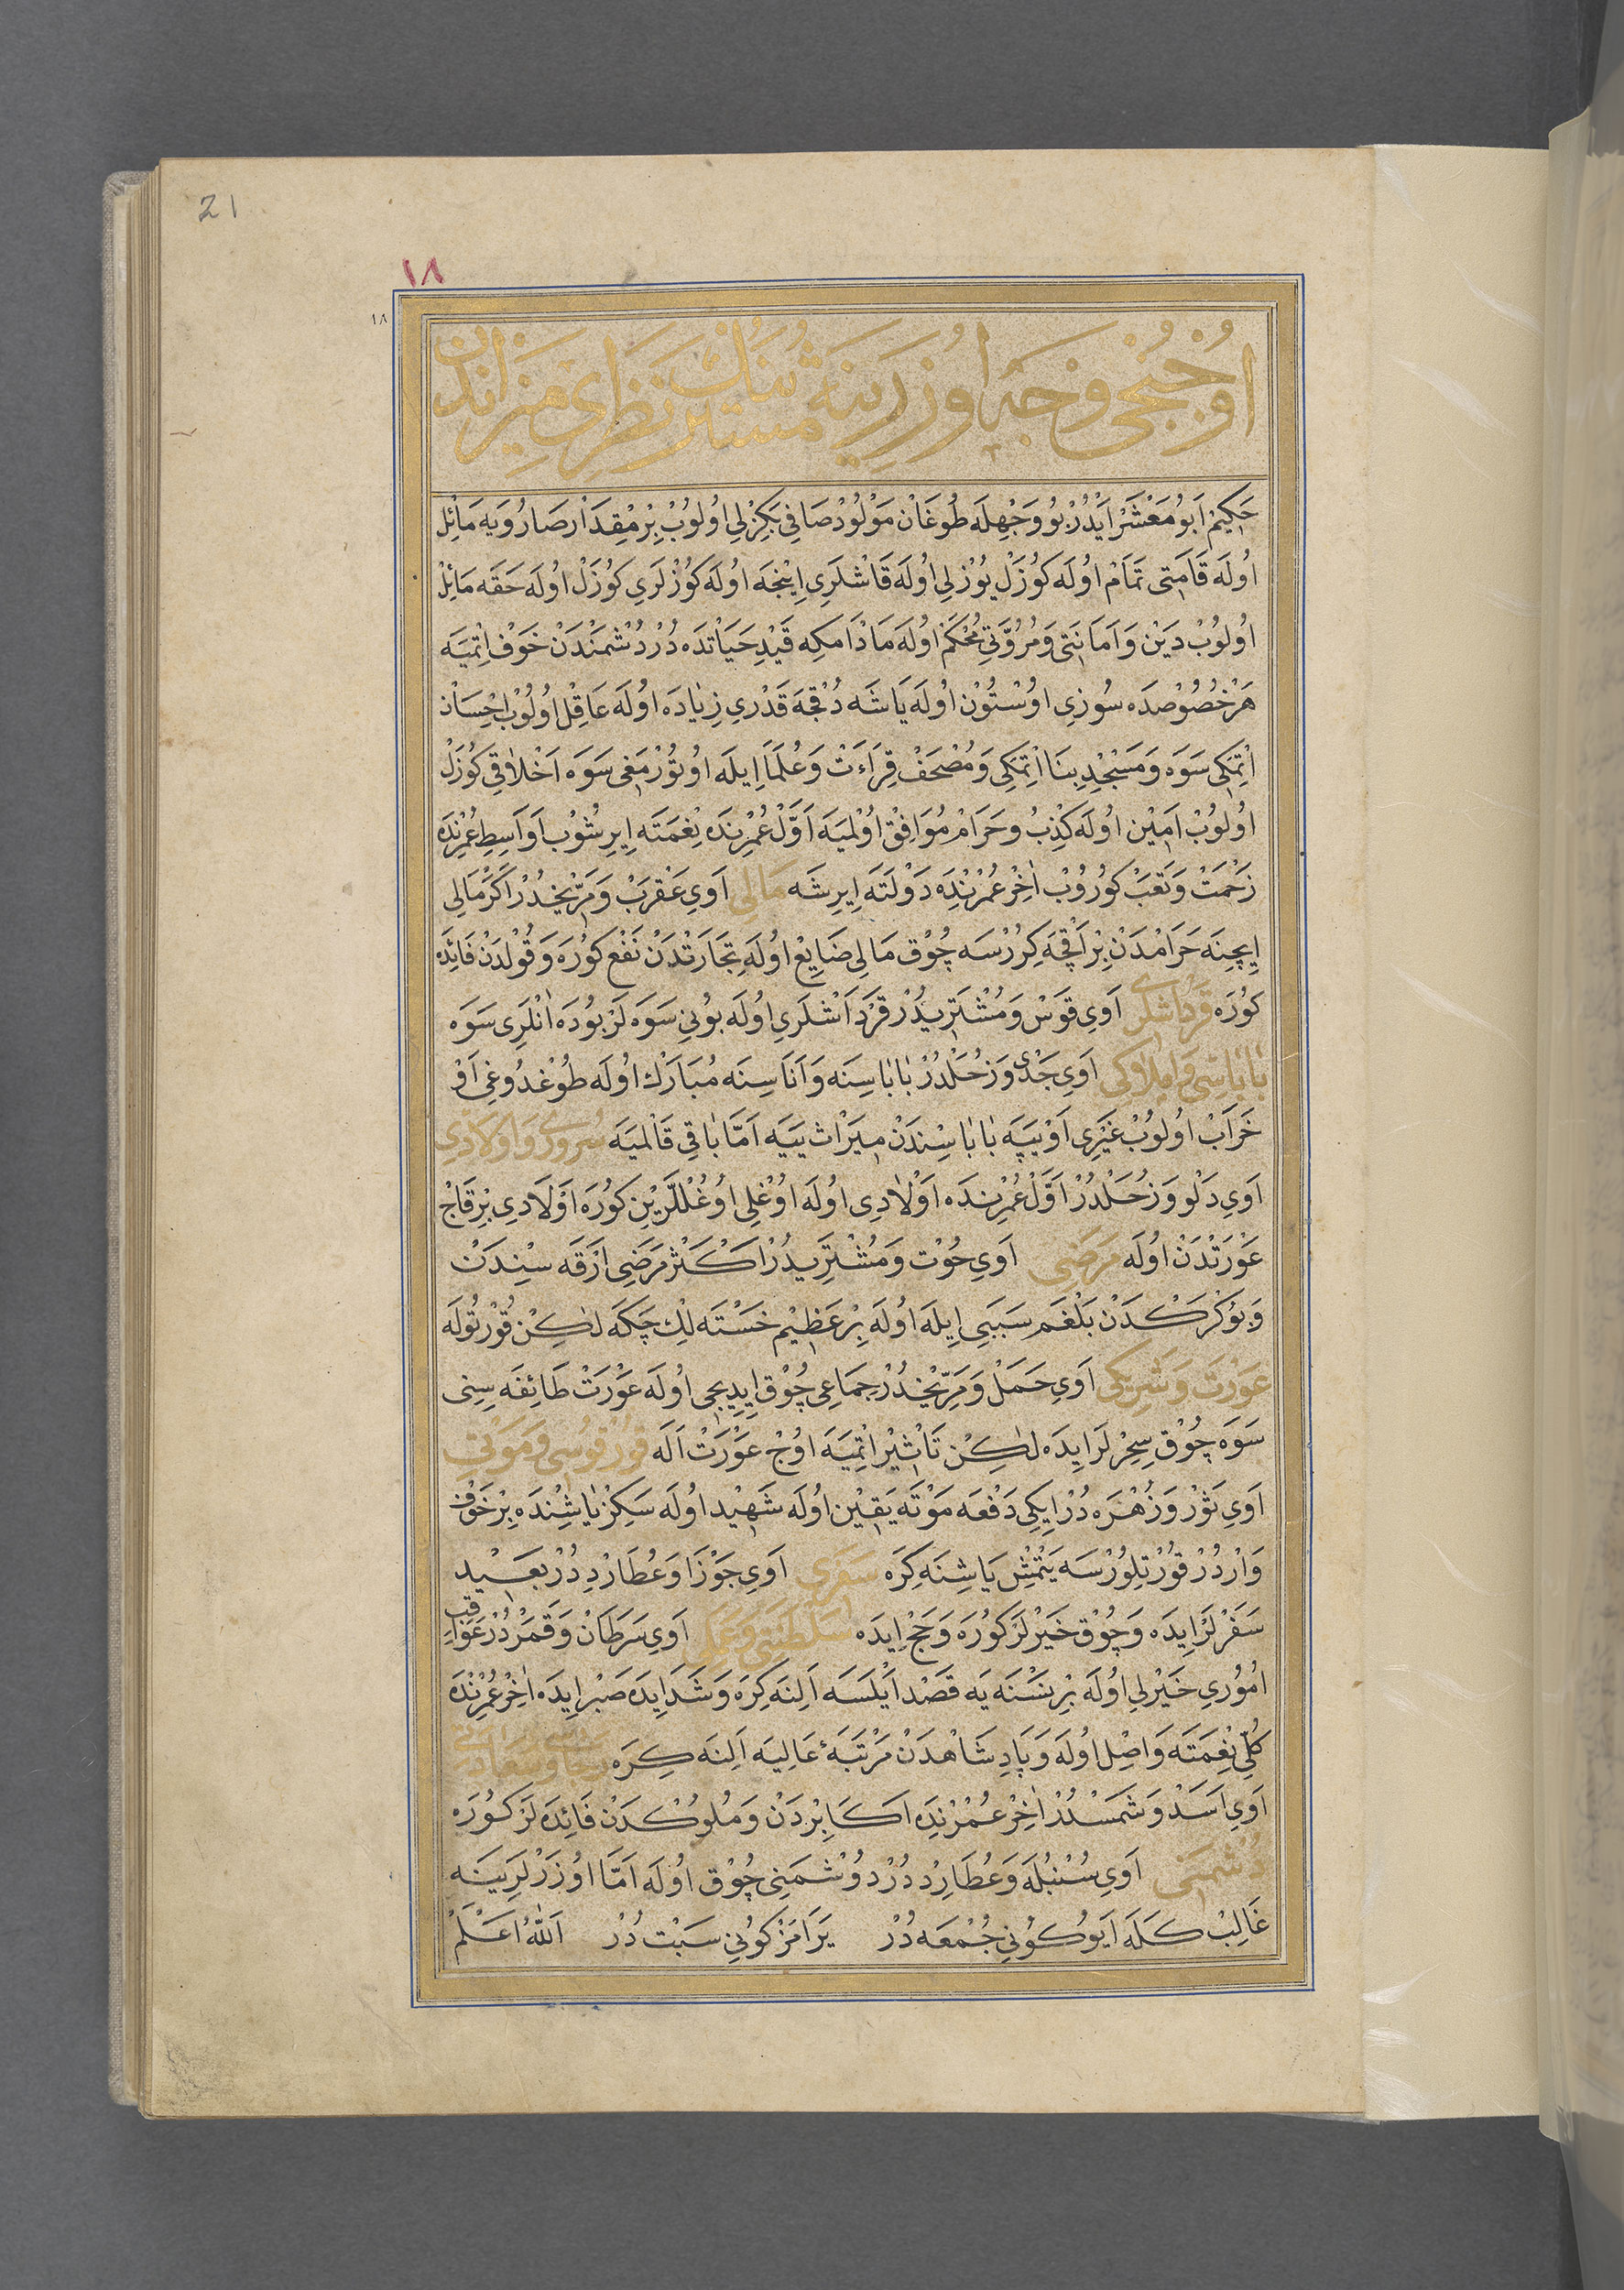 21
١٨
١٨
اُوْچُنْجِى وَجْهْ اُوزَرِينَه مُشْتَرِينُكْ نَظَرِى مِيزَانْدَنْ
حَكِيمْ اَبُو مَعْشَرْ اَيْدُرْ بُو وَجْهِلَه طُوغَانْ مَوْلُودْ صَافِى بَكِزْلِى اُولُوبْ بِرْ مِقْدَارْ صَارُويَه مَائِلْ
اُولَه قَامَتِى تَمَامْ اُولَه كُوزَلْ يُوزْلِى اُولَه قَاشْلَرِى اِينْجَه اُولَه كُوزْلَرِى كُوزَلْ اُولَه حَقَّه مَائِلْ
اُولُوبْ دِينْ وَ اَمَانَتِى وَ مُرُوَّتِى مُحْكَمْ اُولَه مَادَامَكِه قَيْدِ حَيَاتْدَه دُرْ دُشْمَنْدَنْ خَوْفْ اِتْمَيَه
هَرْ خُصُوصْدَه سُوزِى اُوسْتُونْ اُولَه يَاشَه دُقْجَه قَدْرِى زِيَادَه اُولَه عَاقِلْ اُولُوبْ اِحْسَانْ
اِتْمَكِى سَوَه وَ مَسْجِدْ بِنَا اِتْمَكِى وَ مُصْحَفْ قِرَاءَتْ وَ عُلَمَا اِيلَه اُوتُورْمَغِى سَوَه اَخْلَاقِى كُوزَلْ
اُولُوبْ اَمِينْ اُولَه كَذِبْ وَ حَرَامْ مُوَافِقْ اُولْمَيَه اَوَّلْ عُمْرِنْدَه نِعْمَتَه اِيرِشُوبْ اَوَاسِطِ عُمْرِنْدَه
زَحْمَتْ وَ تَعَبْ كُورُوبْ اٰخِرْ عُمْرِنْدَه دَوْلَتَه اِيرِشَه مَالِى اَوِى عَقْرَبْ وَ مَرِّيخْدُرْ اَكَرْ مَالِى
اِيچِنَه حَرَامْدَنْ بِرْ اَقْچَه كِرُرْسَه چُوقْ مَالِى ضَايِعْ اُولَه تِجَارَتْدَنْ نَفْعْ كُورَه وَ قُولْدَنْ فَائِدَه
كُورَه قَرْدَاشْلَرِى اَوِى قَوْسْ وَ مُشْتَرِيدُرْ قَرْدَاشْلَرِى اُولَه بُونِى سَوَه لَرْ بُودَه اٰنْلَرِى سَوَه
بَابَاسِى وَ اَمْلَاكِى اَوِى جَدْى وَ زُحَلْدُرْ بَابَاسِنَه وَ اَنَاسِنَه مُبَارَكْ اُولَه طُوغْدُوغِى اَوْ
خَرَابْ اُولُوبْ غَيْرِى اَوْ يَپَه بَابَاسِنْدَنْ مِيرَاثْ يِيَه اَمَّا بَاقِى قَالْمَيَه سُرُورِى وَ اَوْلَادِى
اَوِى دَلْو وَ زُحَلْدُرْ اَوَّلْ عُمْرِنْدَه اَوْلَادِى اُولَه اُوغْلِى اُوغُلْلَرِينْ كُورَه اَوْلَادِى بِرْ قَاچْ
عَوْرَتْدَنْ اُولَه مَرَضِى اَوِى حُوتْ وَ مُشْتَرِيدُرْ اَكْثَرْ مَرَضِى اَرْقَه سِنْدَنْ
وَ بُوكْرَكْدَنْ بَلْغَمْ سَبَبِى اِيلَه اُولَه بِرْ عَظِيمْ خَسْتَه لِكْ چَكَه لٰكِنْ قُورْتُولَه
عَوْرَتْ وَ شَرِيكِى اَوِى حَمَلْ وَ مَرِّيخْدُرْ جِمَاعِى چُوقْ اِيدِيجِى اُولَه عَوْرَتْ طَائِفَه سِنِى
سَوَه چُوقْ سِحِرْلَرْ اِيدَه لٰكِنْ تَأْثِيرْ اِتْمَيَه اُوچْ عَوْرَتْ اَلَه قُورْقُوسِى وَ مَوْتِى
اَوِى ثَوْرْ وَ زُهْرَه دُرْ اِيكِى دَفْعَه مَوْتَه يَقِينْ اُولَه شَهِيدْ اُولَه سَكِزْ يَاشِنْدَه بِرْ خَوْفْ
وَارْدُرْ قُورْتِلُورْسَه يَتْمِشْ يَاشِنَه كِرَه سَفَرِى اَوِى جَوْزَا وَ عُطَارِدْ دُرْ بَعِيدْ
سَفَرْلَرْ اِيدَه وَ چُوقْ خَيْرْلَرْ كُورَه وَ حَجّ اِيدَه سَلْطَنَتِى وَ عَمَلِى اَوِى سَرَطَانْ وَ قَمَرْدُرْ عَوَاقِبِ
اُمُورِى خَيْرْلِى اُولَه بِرْ نَسْنَه يَه قَصْدْ اَيْلَسَه اَلِنَه كِرَه وَ شَدَايِدَه صَبْرْ اِيدَه اٰخِرْ عُمْرِنْدَه
كُلِّى نِعْمَتَه وَاصِلْ اُولَه وَ پَادِشَاهْدَنْ مَرْتَبَۀ عَالِيَه اَلِنَه كِرَه رَجَا وَ سَعَادَتِى
اَوِى اَسَدْ وَ شَمْسْدُرْ اٰخِرْ عُمْرِنْدَه اَكَابِرْدَنْ وَ مُلُوكْدَنْ فَائِدَه لَرْ كُورَه
دُشْمَنِى اَوِى سُنْبُلَه وَ عُطَارِدْ دُرْ دُوشْمَنِى چُوقْ اُولَه اَمَّا اُوزَرْلَرِينَه
غَالِبْ كَلَه اَيُو كُونِى جُمْعَه دُرْ يَرَامَزْ كُونِى سَبْتْ دُرْ اَللّٰهُ اَعْلَمْ